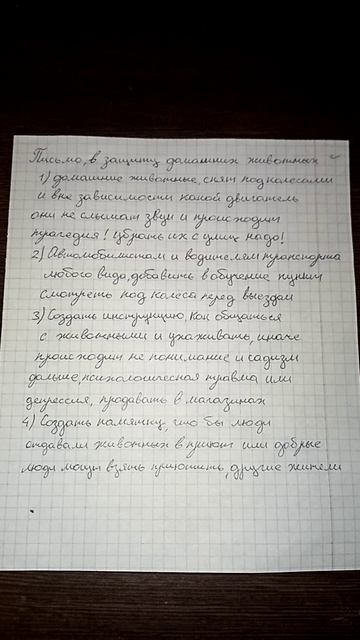 Письмо, в защиту домашних животных
1) домашние животные, спят под колёсами
и вне зависимости какой двигатель
они не слышат звук и происходит
трагедия! Убрать их с улиц надо!
2) Автомобилистам и водителям транспорта
любого вида, добавить в обучение пункт
смотреть под колёса перед выездом
3) Создать инструкцию, как общаться
с животными и ухаживать, иначе
происходит не понимание и садизм
дальше, психологическая травма или
депрессия, продавать в магазинах
4) Создать памятку, что бы люди
отдавали животных в приют или добрые
люди могли взять приютить, другие жители